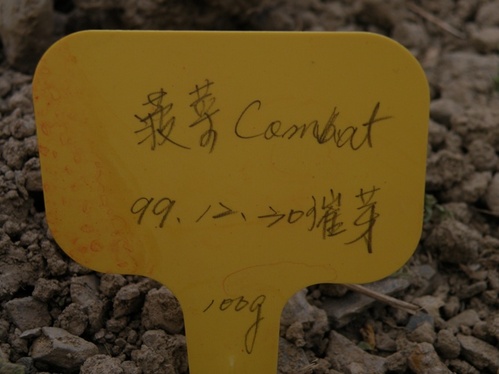 菠菜 Combat
99.12.30催芽
100g